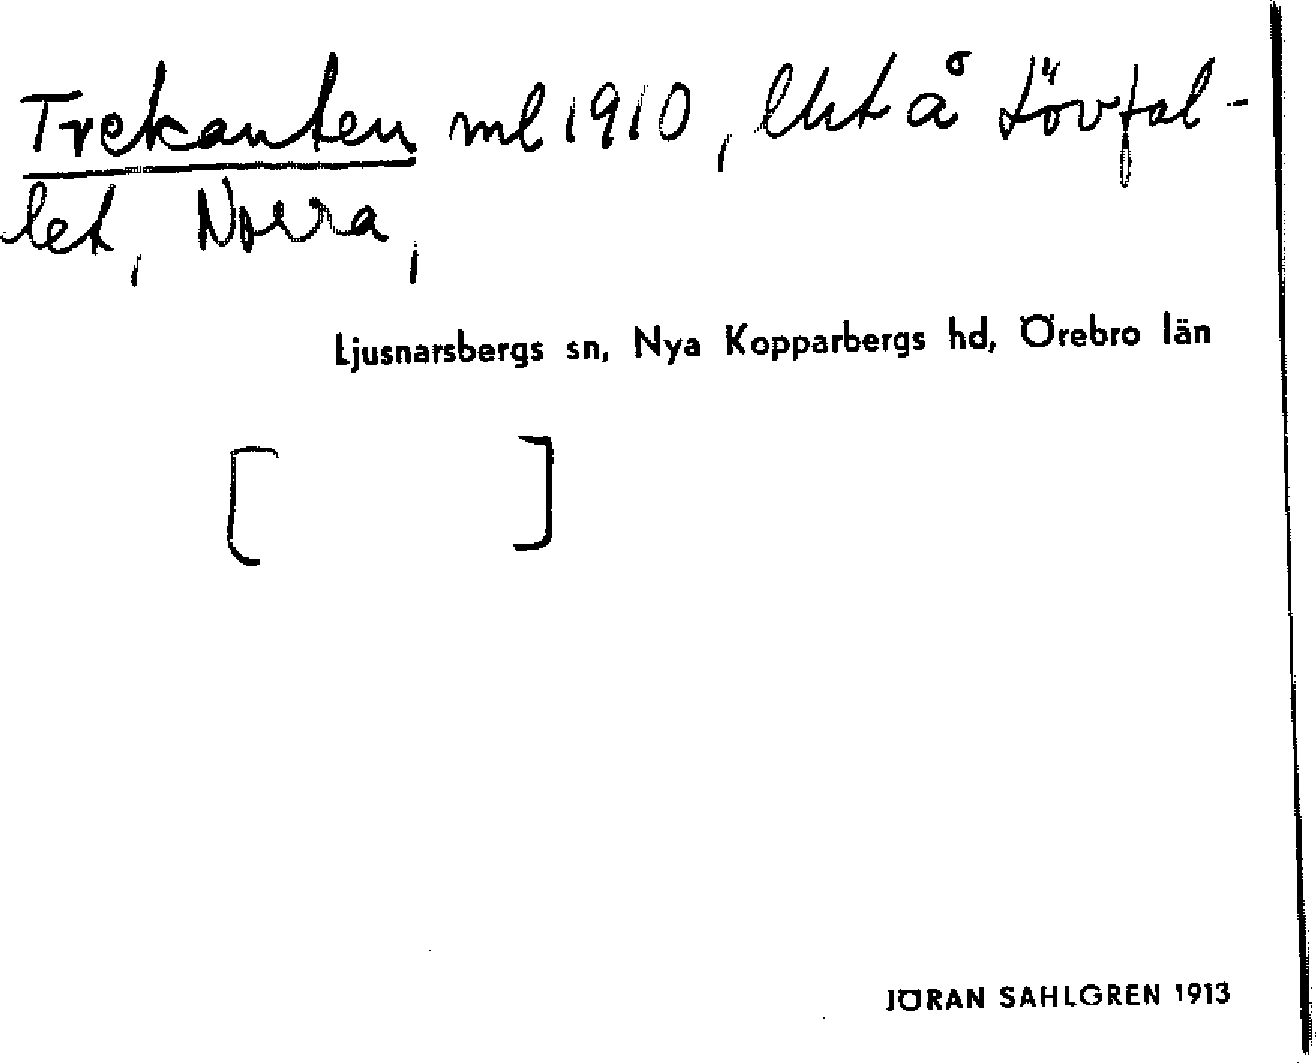 Trekanten ml 1910, lht å Lövfal-
let, Norra,
Ljusnarsbergs sn, Nya Kopparbergs hd, Örebro län
[ ]
JÖRAN SAHLGREN 1913